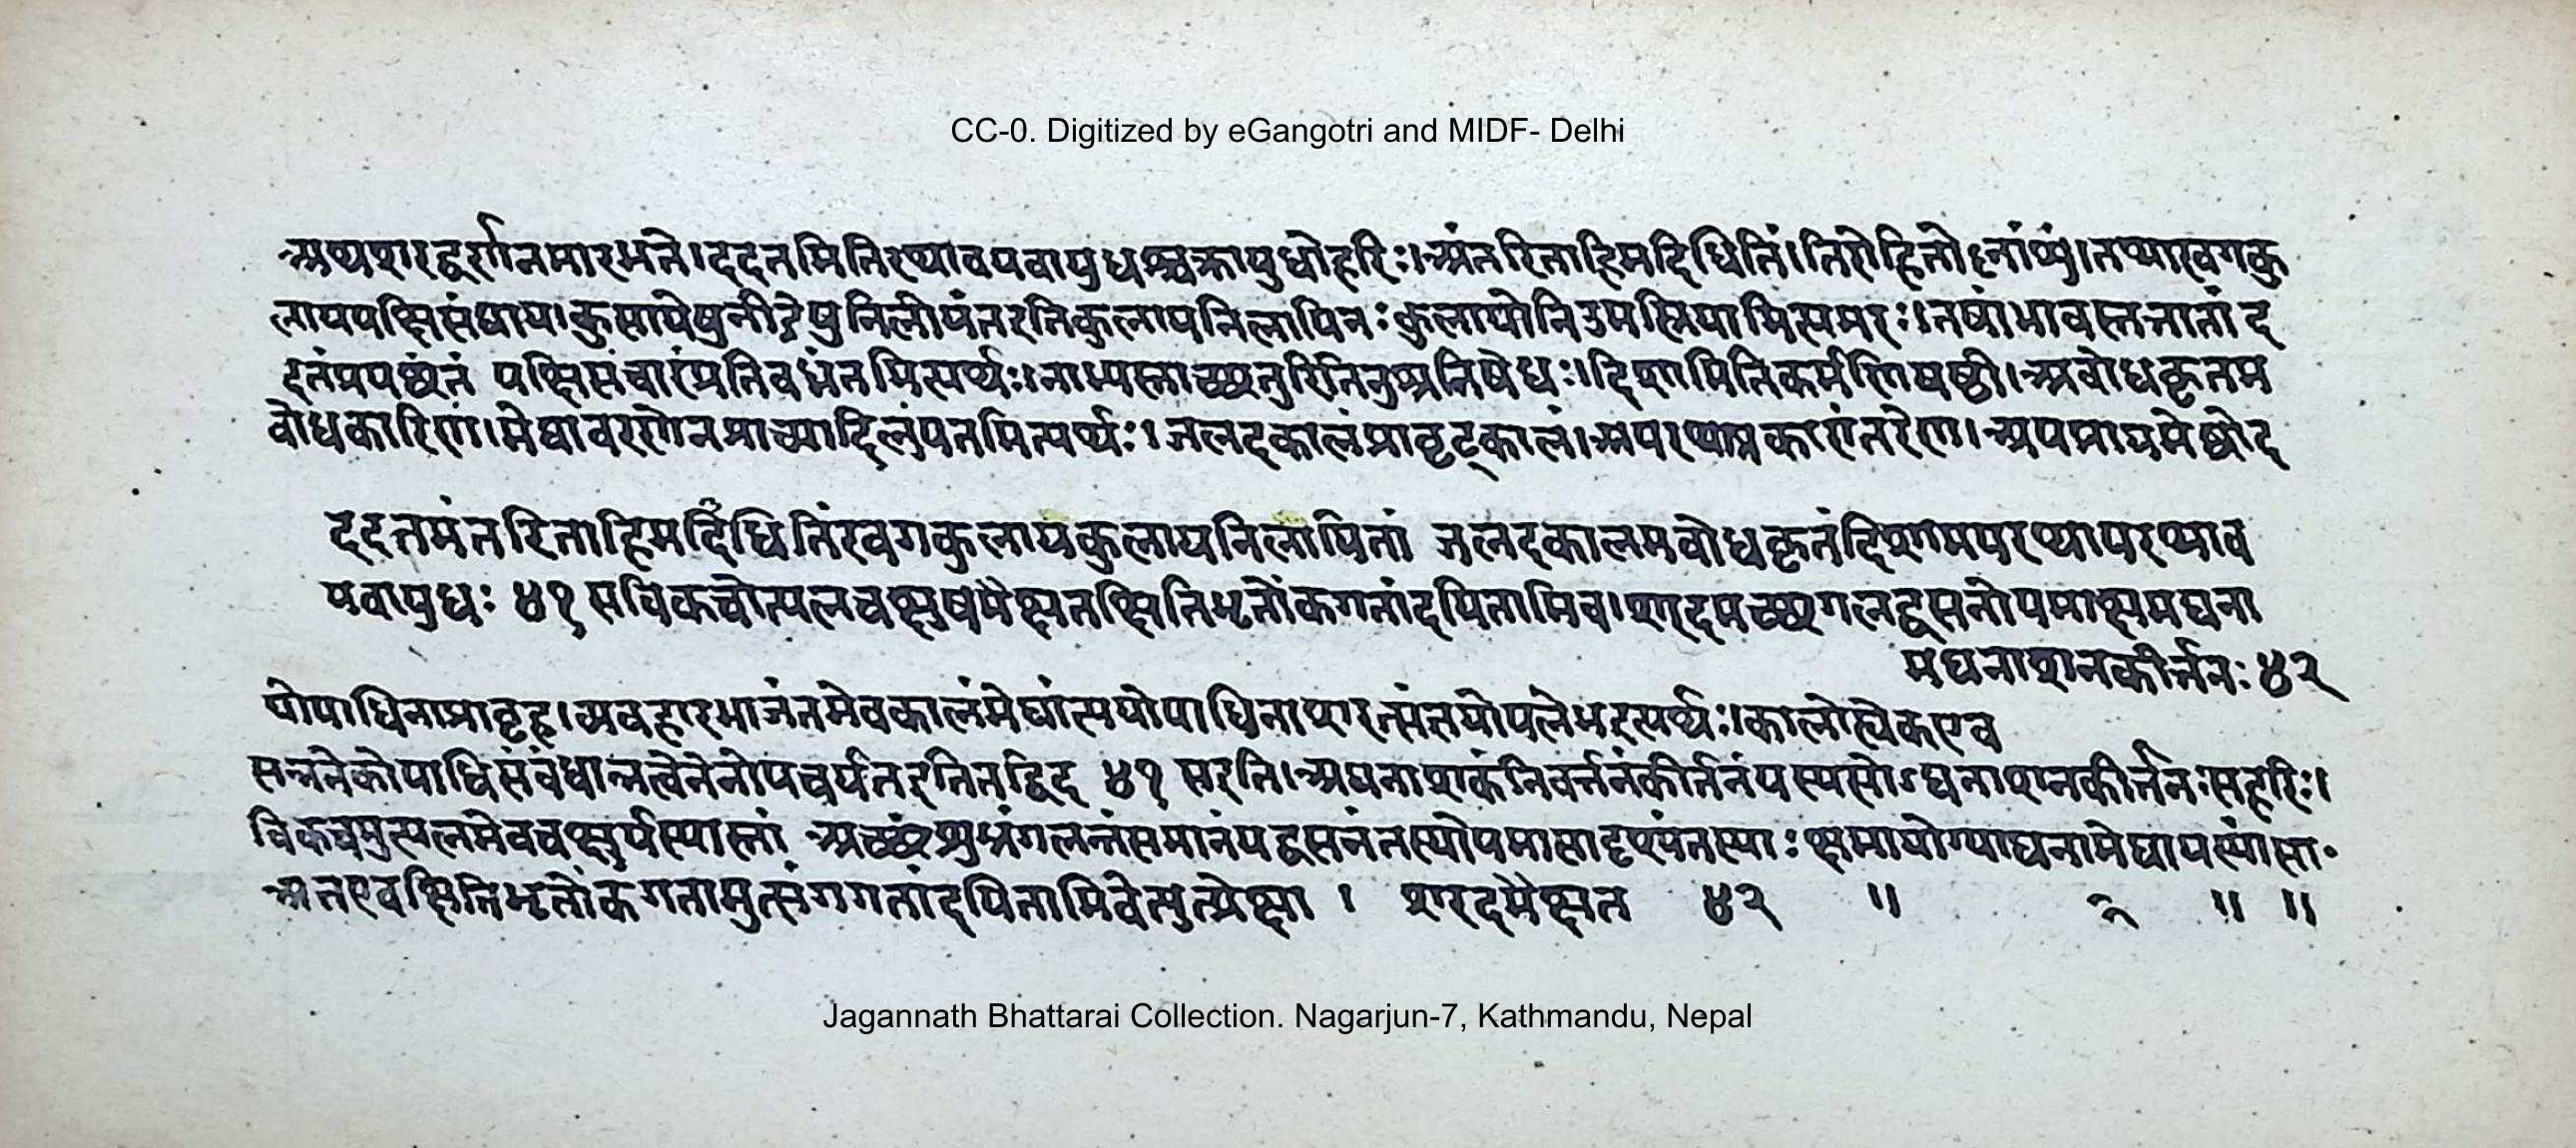 CC-0. Digitized by eGangotri and MIDF- Delhi
अथशरद्वर्णनमारभते।ददतमितिरथावयवायुधश्चक्रायुधोहरिः।अंतरिताहिमदिधितिं।तिरोहितोष्नांशुं।तथाखगकु
लायपक्षिसंघाय।कुलायेषुनीडेषुनिलीयंतइतिकुलायनिलायिनःकुलायोनिडमस्त्रियामित्यमरः।तेषांभावस्तत्तातां द
दतंप्रयछंतं पक्षिसंचारंप्रतिबध्नंतमित्यर्थः।नाभ्यस्ताच्छतुरितिनुम्प्रतिषेधः।दिशामितिकर्मणिषष्ठी।अबोधकृतम
बोधकारिणं।मेघावरणेनप्राच्यादिलुंपतमित्यर्थः।जलदकालंप्रावृट्कालं।अपरथाप्रकारांतरेण।अपप्राप्यमेछोद
ददतमंतरिताहिमदिधितिंखगकुलायकुलायनिलायितां जलदकालमबोधकृतंदिशामपरथापरथाव
यवायुधः ४१ सविकचोत्पलचक्षुषमैक्षतक्षितिभृतोंकगतांदयितामिव।शरदमच्छगलद्वसनोपमाक्षमघना
मघनाशनकीर्त्तनः ४२
योपाधिनाप्रावृट्व्यवहारभाजंतमेवकालंमेघात्ययोपाधिनाशरत्संतयोपलेभइत्यर्थः।कालोह्येकएव
सन्ननेकोपाधिसंबंधान्नत्वेनेनोपचर्यतइतितद्विद ४१ सइति।अघनाशकंनिवर्त्तनंकीर्तनंयस्यसोऽघनाशनकीर्त्तनःसहरिः।
विकचमुत्पलमेवचक्षुर्यस्यास्तां अच्छंशुभ्रंगलन्तंसमानंयद्वसनंतस्योपमासादृश्यंतस्याःक्षमायोग्याघनामेघायस्यांसा॰
अतएवक्षितिभृतोंकगतामुत्संगगतांदयितामिवेत्युत्प्रेक्षा । शरदमैक्षत ४२ ॥ २ ॥ ॥
Jagannath Bhattarai Collection. Nagarjun-7, Kathmandu, Nepal